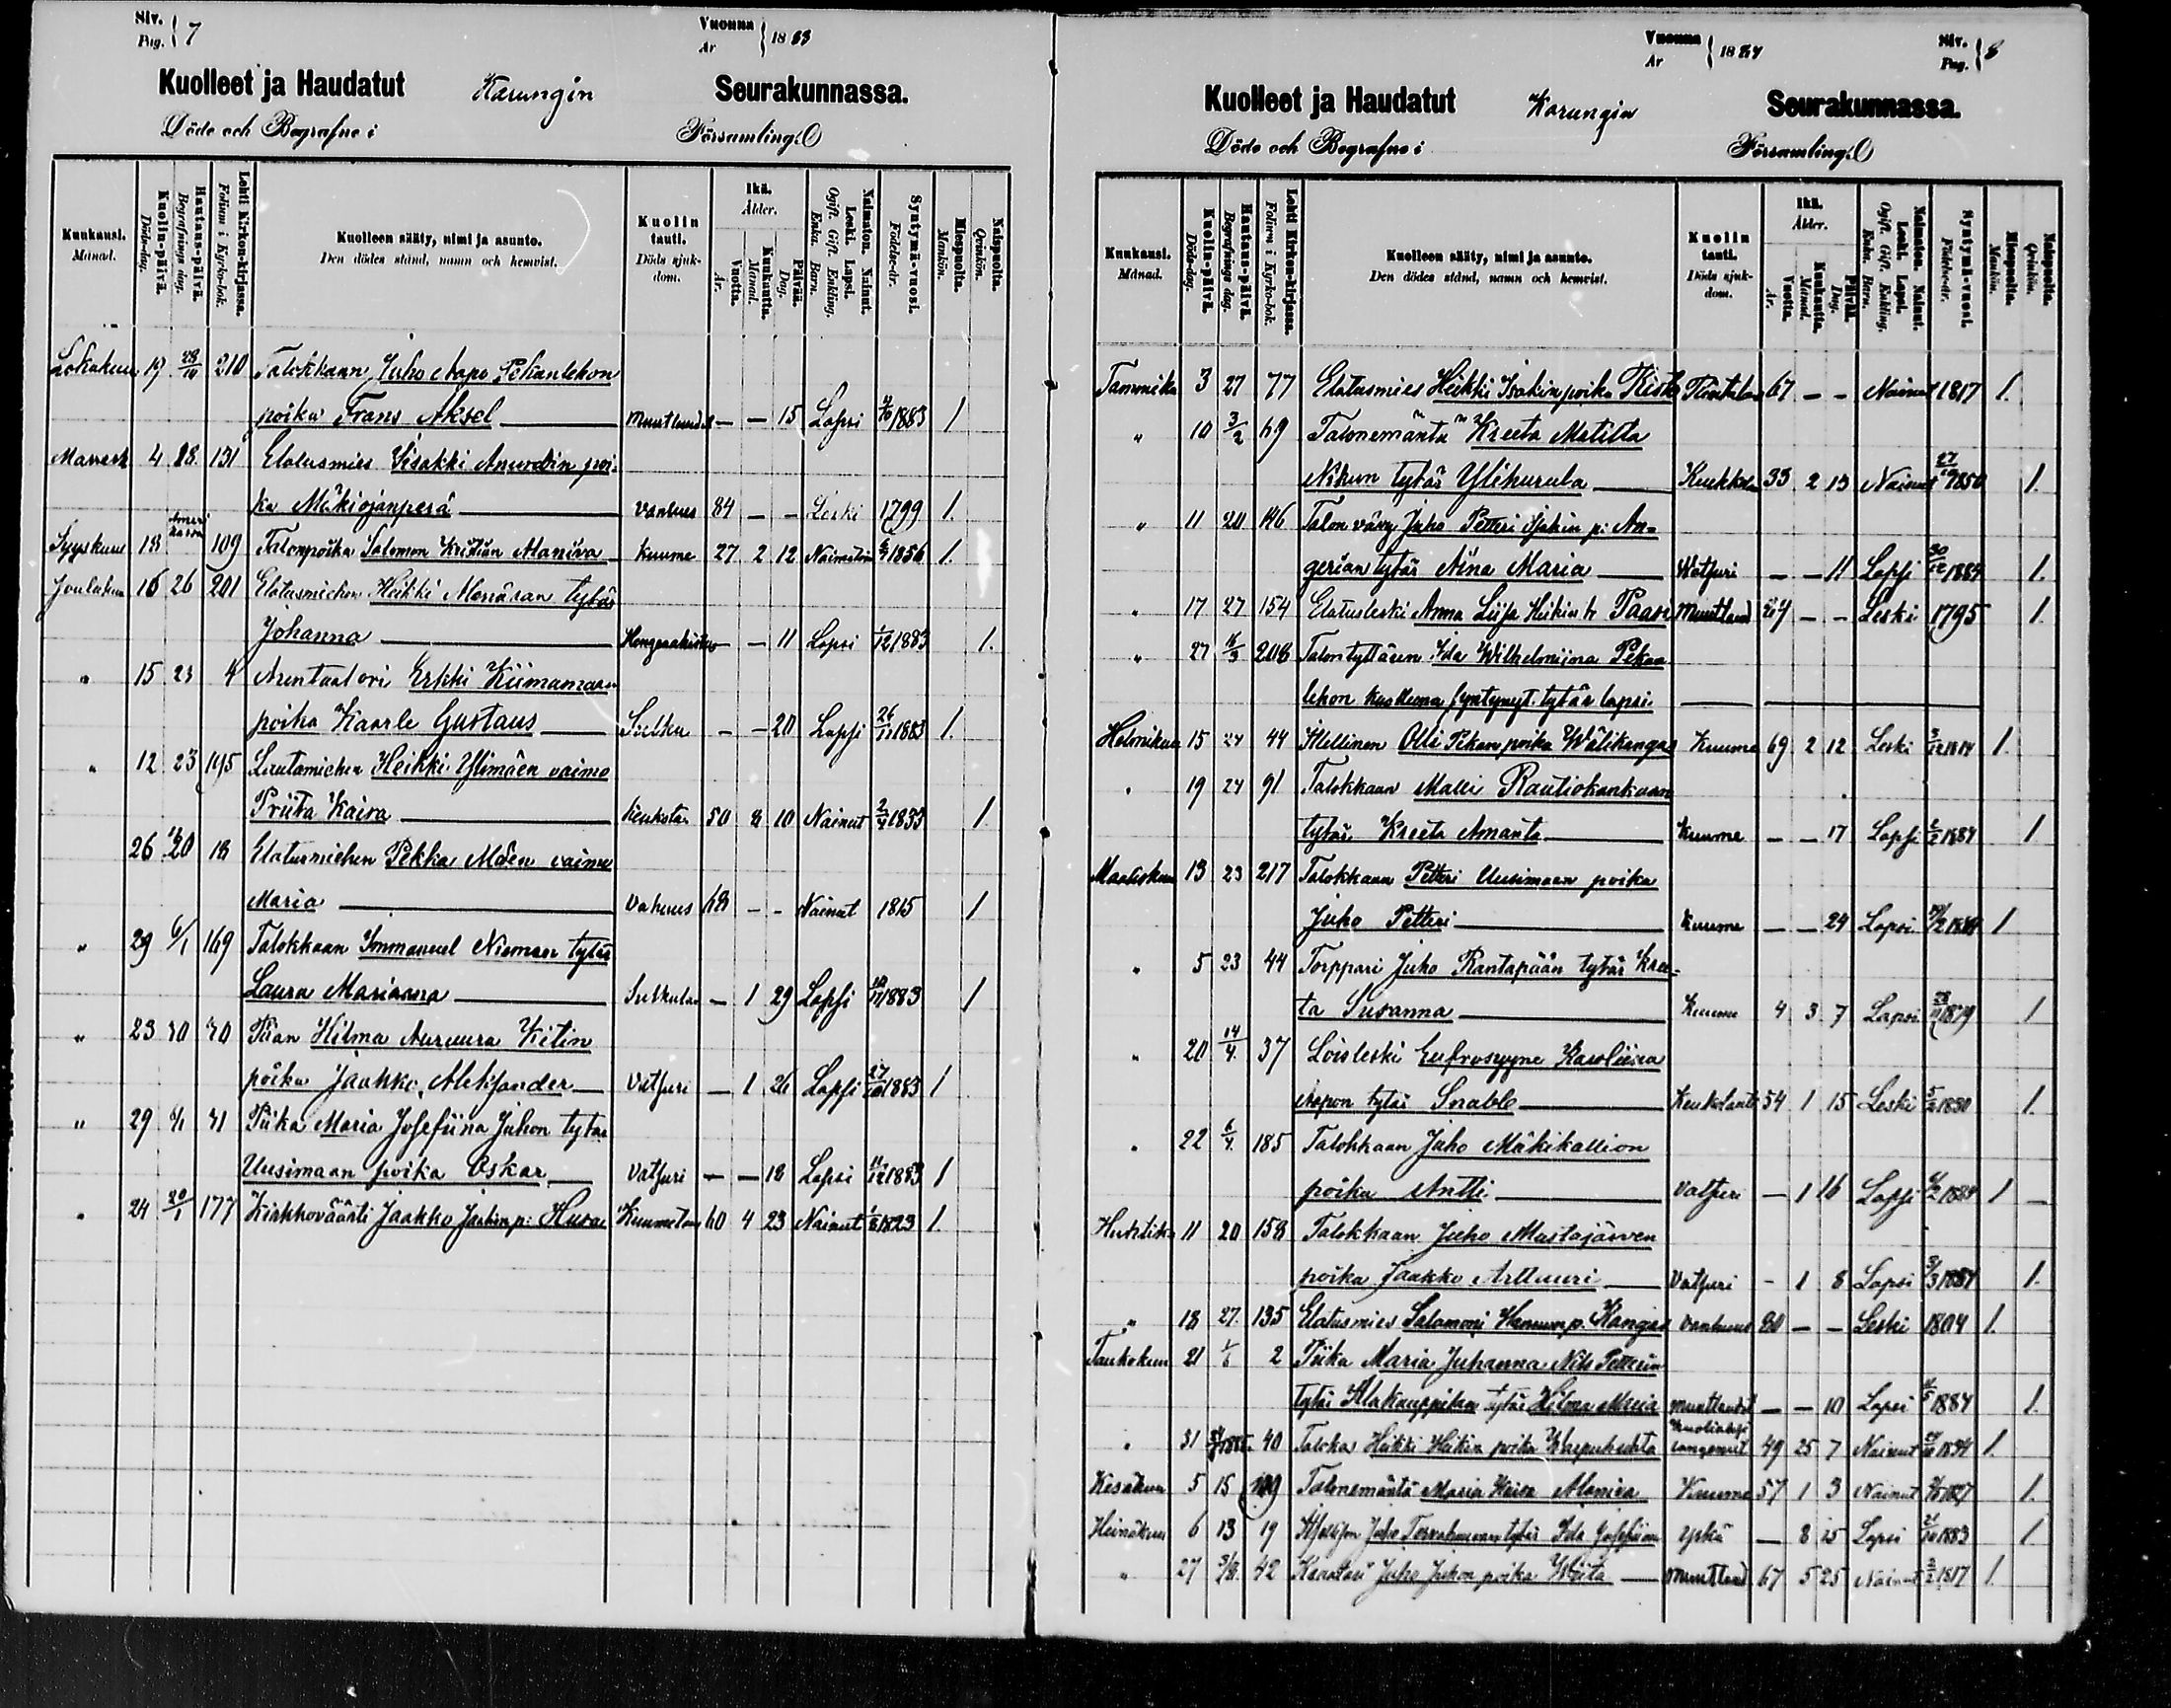 Siv. Pag. 7 Vuonna År 1883
Kuolleet ja Haudatut Karungin Seurakunnassa.
Döde och Begrafne i Församling.
Kuukausi. Månad. Kuolin-päivä. Döds-dag. Hautaus-päivä. Begrafnings dag. Lehti Kirkon-kirjassa. Folium i Kyrko-bok. Kuolleen sääty, nimi ja asunto. Den dödes stånd, namn och hemvist. Kuolin tauti. Döds sjuk-dom. Ikä. Ålder. Vuotta. År. Kuukautta. Månad. Päivää. Dag. Naimaton. Nainut. Leski. Lapsi. Ogift. Gift. Enkling. Enka. Barn. Syntymä-vuosi. Födelse-år. Miespuolta. Mankön. Naispuolta. Qvinkön.
Lokakuu 19 28/10 210 Talokkaan Juho Aapo Pekanlehon
poika Frans Aksel — — 15 Lapsi 1883 1
Marrask 4 18 131 Elatusmies Iisakki poi-
ka Mäkiojanperä vanhuus 84 — — Leski 1799 1.
Syyskuu 18 109 Talonpoika Salomon Kristian Alaniva kuume 27 2 12 Naimatoin 1856 1.
Joulukuu 16 26 201 Elatusmiehen Heikki tytär
Johanna — — 11 Lapsi 1/12 1883 1.
" 15 23 4 Arentaatori Erkki Kiimamaan
poika Kaarle Gustaus — — 20 Lapsi 26/11 1883 1.
" 12 23 195 Lautamiehen Heikki Ylimäen vaimo
Priita Kaisa keuhkotau 50 8 10 Nainut 2/4 1833 1
26 20 18 Elatusmiehen Pekka vaimo
Maria Vahuus 68 — — Nainut 1815 1
" 29 6/1 169 Talokkaan Immanuel Nieman tytär
Laura Marianna — 1 29 Lapsi 1883 1
" 23 30 70 Piian Hilma Auruura
poika Jaakko Aleksander Vatsuri — 1 26 Lapsi 27/10 1883 1
" 29 6/1 71 Piika Maria Josefiina Juhon tytär
Uusimaan poika Oskar Vatsuri — — 18 Lapsi 11/12 1883 1
" 24 20/1 177 Kirkkoväärti Jaakko Jaakin p: Kuumetau 60 4 23 Nainut 1/8 1823 1.
Vuonna År 1884 Siv. Pag. 8
Kuolleet ja Haudatut Karungin Seurakunnassa.
Döde och Begrafne i Församling.
Kuukausi. Månad. Kuolin-päivä. Döds-dag. Hautaus-päivä. Begrafnings dag. Lehti Kirkon-kirjassa. Folium i Kyrko-bok. Kuolleen sääty, nimi ja asunto. Den dödes stånd, namn och hemvist. Kuolin tauti. Döds sjuk-dom. Ikä. Ålder. Vuotta. År. Kuukautta. Månad. Päivää. Dag. Naimaton. Nainut. Leski. Lapsi. Ogift. Gift. Enkling. Enka. Barn. Syntymä-vuosi. Födelse-år. Miespuolta. Mankön. Naispuolta. Qvinkön.
Tammiku 3 27 77 Elatusmies Heikki Isakin poika 67 — — Nainut 1817 1.
" 10 3/2 69 Talonemäntä Kreeta Matilta
tytär Ylihurula Keuhkotau 33 2 13 Nainut 27/10 1850 1.
" 11 20 146 Talon vävy Juho Petteri Isakin p: An-
gerian tytär Aina Maria Watsuri — — 11 Lapsi 30/12 1884 1.
" 17 27 154 Elatusleski Anna Liisa Heikin tr Paavi 89 — — Leski 1795 1.
" 27 16/3 208 Talontyttären Ida Wilhelmiina Pekan
lehon kuolleena syntynyt tytär lapsi
Helmikuu 15 24 44 Itsellinen Olli Pekan poika Wälikangas Kuume 69 2 12 Leski 3/12 1814 1.
" 19 24 91 Talokkaan Matti Rautiokankaan
tytär Kreeta Amanta Kuume — — 17 Lapsi 2/2 1884 1
Maaliskuu 13 23 217 Talokkaan Petteri Uusimaan poika
Juho Petteri Kuume — — 24 Lapsi 1884 1
" 5 23 44 Torppari Juho Rantapään tytär Kree-
ta Susanna Kuume 4 3 7 Lapsi 28/11 1879 1
" 20 14/4 37 Loisleski Eufrosyyne Karoliiina
Aapon tytär Snabb Keuhkotauti 54 1 15 Leski 5/2 1830 1.
" 22 6/4 185 Talokkaan Juho Mäkikallion
poika Antti Vatsuri — 1 16 Lapsi 6/2 1884 1
Huhtiku 11 20 158 Talokkaan Juho Mustajärven
poika Jaakko Arttuuri Vatsuri — 1 8 Lapsi 3/3 1884 1.
" 18 27 135 Elatusmies Salamoni p. Kangas Vanhuus 80 — — Leski 1804 1.
Toukokuu 21 1/6 2 Piika Maria Juhanna Nils Petterin
tytär Alakauppilan tytär Hilma Maria — — 10 Lapsi 11/5 1884 1.
" 31 40 Heikki Heikin poika Karpukuhta 49 25 7 Nainut 1834 1.
Kesäkuu 5 15 Talonemäntä Maria Kaisa Alaniva Kuume 57 1 3 Nainut 1827 1.
Heinäkuu 6 13 19 Juho tytär Ida Josefiina Yskä — 8 15 Lapsi 21/10 1883 1
" 27 3/8 42 Juho Juhon poika 67 5 25 Nainut 2/2 1817 1.